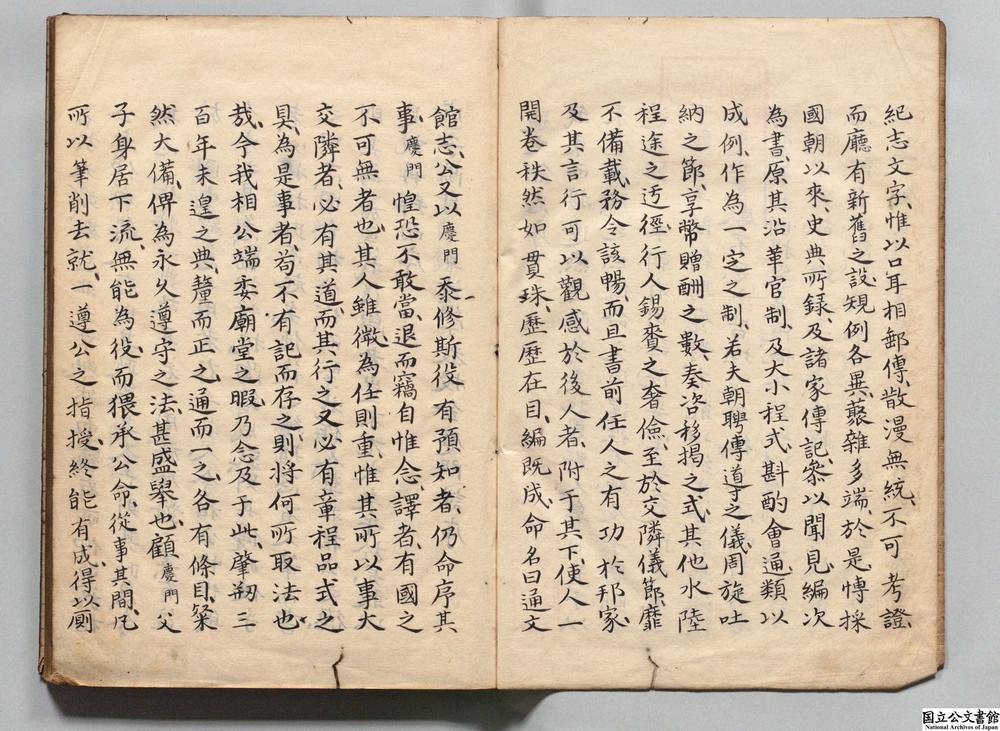 紀志文字、惟以口耳相郵傳、散漫無統、不可考證、
而廳有新舊之設、規例各異、藂雜多端、於是慱採
國朝以來、史典所錄、及諸家傳記、叅以聞見、編次
為書、原其沿革官制、及大小程式、斟酌會通、類以
成例、作為一定之制、若夫朝聘傳道予之儀、周旋吐
納之節、享幣贈酬之數、奏咨移揭之式、其他水陸
程途之迂徑、行人錫賚之奢儉、至於交隣儀節、靡
不備載、務令該暢、而且書前任人之有功於邦家、
及其言行可以觀感於後人者、附于其下、使人一
開卷秩然如貫珠、歷歷在目、編既成、命名曰通文
館志、公又以慶門忝修斯役、有預知者、仍命序其
事、慶門惶恐不敢當、退而竊自惟念、譯者、有國之
不可無者也、其人雖微、為任則重、惟其所以事大
交隣者、必有其道、而其行之又必有章程品式之
具、為是事者、苟不有記而存之、則將何所取法也
哉、今我相公端委廟堂之暇、乃念及于此、肇刱三
百年未遑之典、釐而正之、通而一之、各有條目、粲
然大備、俾為永久遵守之法、甚盛舉也、顧慶門父
子身居下流、無能為役、而猥承公命、從事其間、凡
所以筆削去就、一遵公之指授、終能有成、得以厠
国立公文書館
National Archives of Japan